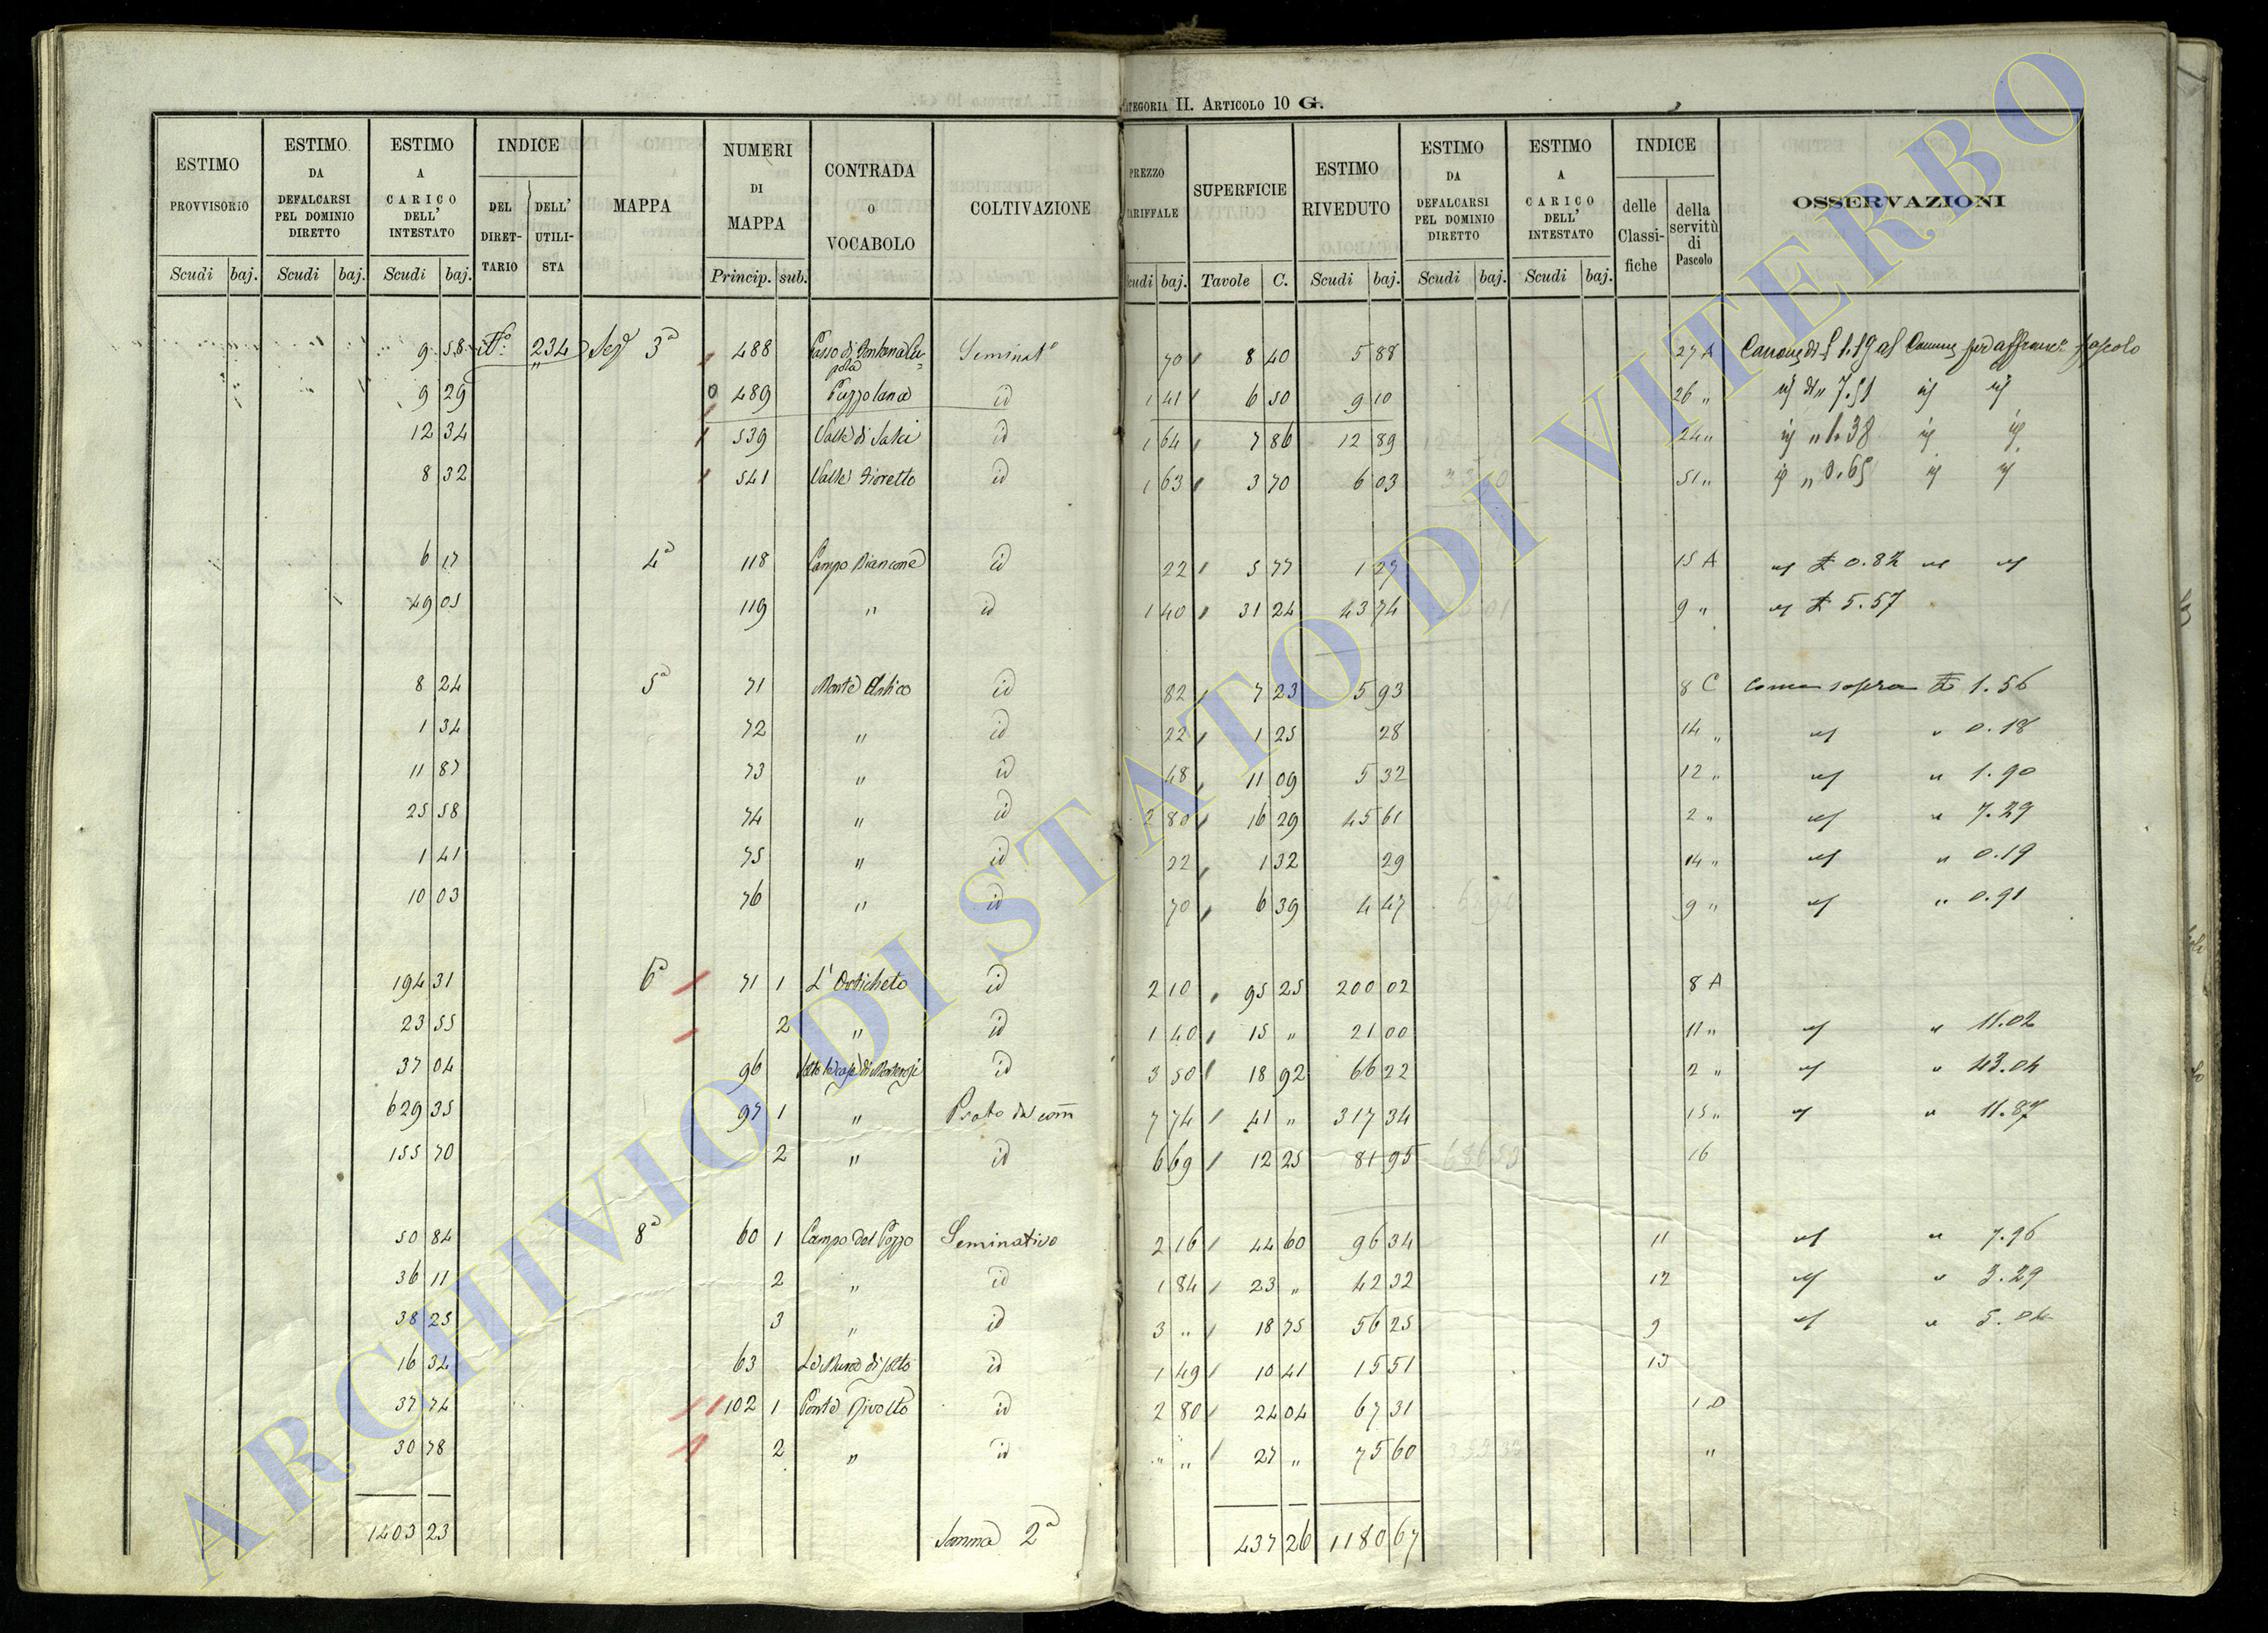 CATEGORIA II. ARTICOLO 10 G.
ESTIMO PROVVISORIO Scudi baj. ESTIMO DA DEFALCARSI PEL DOMINIO DIRETTO Scudi baj. ESTIMO A CARICO DELL' INTESTATO Scudi baj. INDICE DEL DIRETTARIO DELL' UTILISTA MAPPA NUMERI DI MAPPA Princip. sub. CONTRADA O VOCABOLO COLTIVAZIONE PREZZO TARIFFALE Scudi baj. SUPERFICIE Tavole C. ESTIMO RIVEDUTO Scudi baj. ESTIMO DA DEFALCARSI PEL DOMINIO DIRETTO Scudi baj. ESTIMO A CARICO DELL' INTESTATO Scudi baj. INDICE delle Classifiche della servitù di Pascolo OSSERVAZIONI
9 58 234 Segue 3ª 488 Passo di Fontana Cupola Seminato 70 8 40 5 88 27 A Canone di £ 1.19 al Comune per affranc. pascolo
9 29 0 489 Puzzolana id 1 41 6 50 9 10 26 " id di " 7.51 id id
12 34 539 Valle di Salci id 1 64 7 86 12 89 24 " id " 1.38 id id
8 32 541 Valle Fioretto id 1 63 3 70 6 03 51 " id " 0.65 id id
6 17 4ª 118 Campo Biancone id 22 5 77 1 27 15 A id £ 0.82 id id
49 05 119 " id 1 40 31 24 43 74 9 " id £ 5.57
8 24 5ª 71 Monte Antico id 82 7 23 5 93 8 C Come sopra £ 1.56
1 34 72 " id 22 1 25 28 14 " id " 0.18
11 87 73 " id 48 11 09 5 32 12 " id " 1.90
25 58 74 " id 2 80 16 29 45 61 2 " id " 7.29
1 41 75 " id 22 1 32 29 14 " id " 0.19
10 03 76 " id 70 6 39 4 47 9 " id " 0.91
194 31 6ª 71 1 L' Orticheto id 2 10 95 25 200 02 8 A
23 55 2 " id 1 40 15 " 21 00 11 " id " 11.02
37 04 96 id 3 50 18 92 66 22 2 " id " 43.04
629 35 97 1 " Prato 7 74 41 " 317 34 15 " id " 11.87
155 70 2 " id 6 69 12 25 81 95 16
50 84 8ª 60 1 Campo del Pozzo Seminativo 2 16 44 60 96 34 11 id " 7.96
36 11 2 " id 1 84 23 " 42 32 12 id " 3.29
38 25 3 " id 3 " 18 75 56 25 9 id " 5.04
16 34 63 id 1 49 10 41 15 51 13
37 74 102 1 Ponte Rivolto id 2 80 24 04 67 31 1 D
30 78 2 " id " " 27 " 75 60 "
1403 23 Somma 2ª 437 26 1180 67
ARCHIVIO DI STATO DI VITERBO